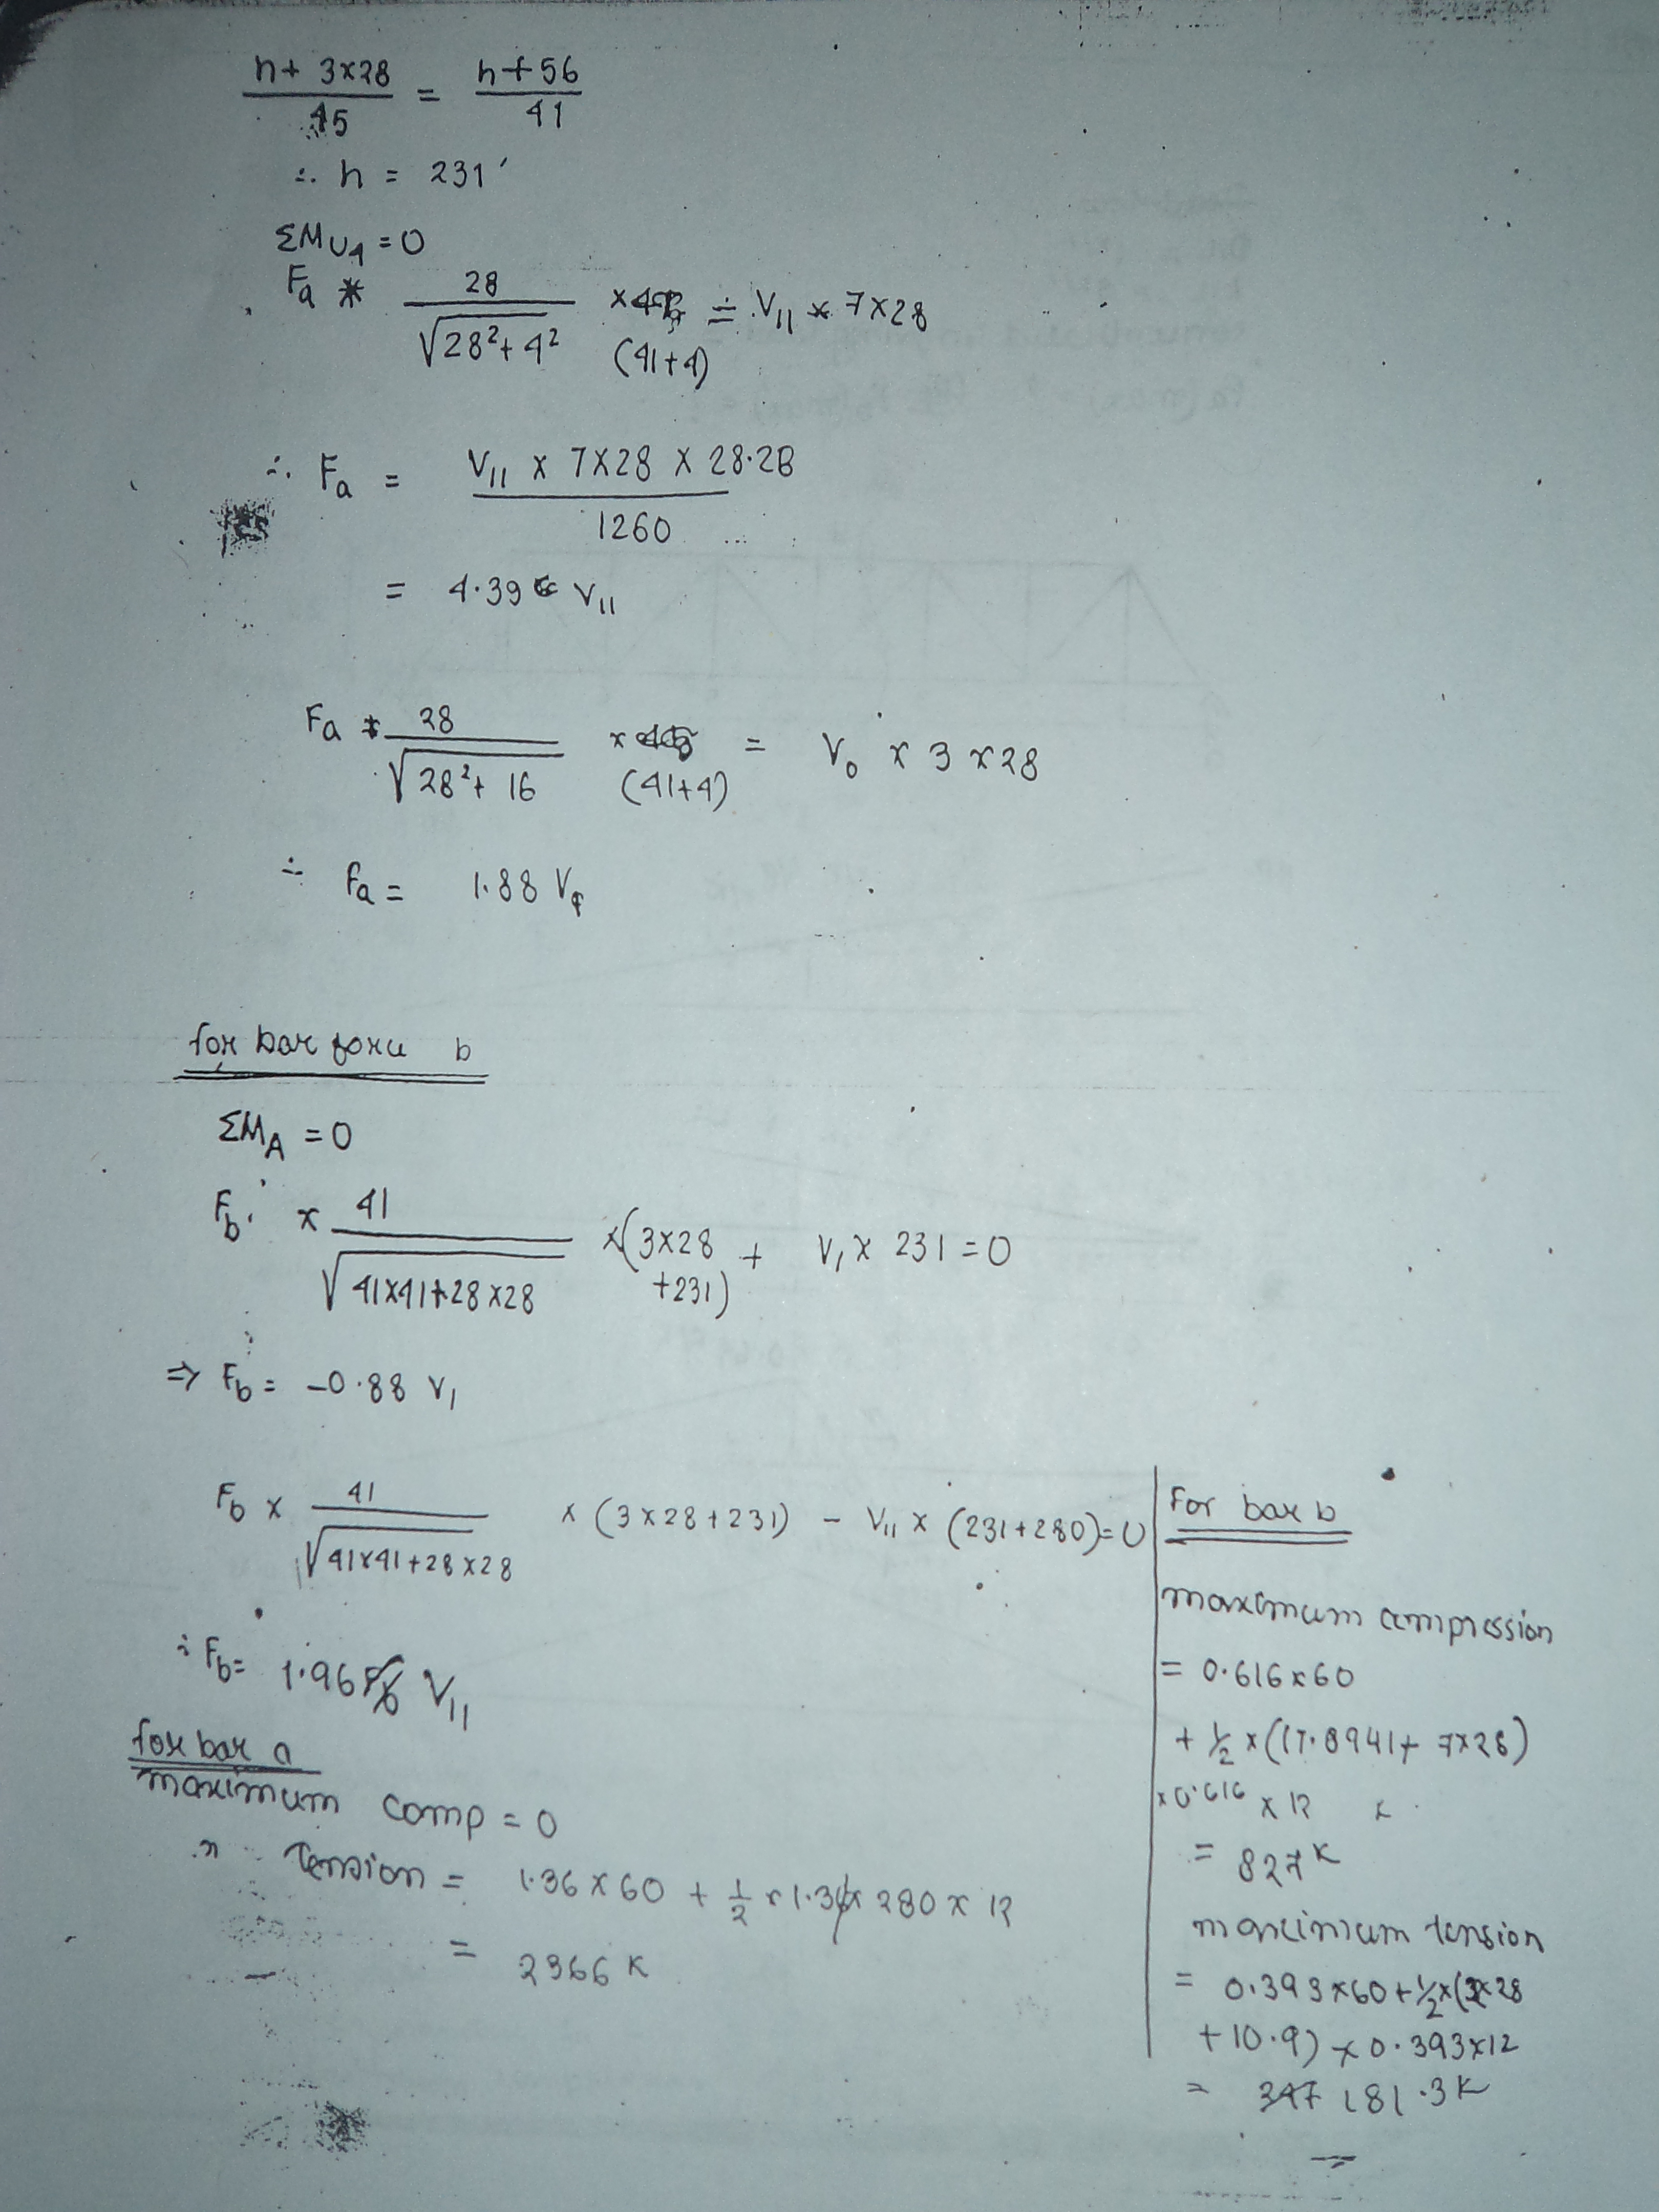 h + 3×28 / 45 = h + 56 / 41
∴ h = 231'
ΣM U4 = 0
Fa * 28 / √28²+4² × (41+4) = V11 * 7×28
∴ Fa = V11 × 7×28 × 28.28 / 1260
= 4.39 V11
Fa * 28 / √28²+16 × (41+4) = V0 × 3×28
∴ Fa = 1.88 V
for bar force b
ΣMA = 0
Fb × 41 / √41×41+28×28 × (3×28 + 231) + V1 × 231 = 0
⇒ Fb = -0.88 V1
Fb × 41 / √41×41+28×28 × (3×28+231) - V11 × (231+280) = 0
∴ Fb = 1.96 V11
for bar a
maximum comp = 0
" Tension = 1.36×60 + 1/2 × 1.36 × 280 × 12
= 2366 K
For bar b
maximum compression
= 0.616×60
+ 1/2 × (17.0941+ 7×28)
×0.616 × 12
= 827 K
maximum tension
= 0.393×60 + 1/2 × (2×28
+10.9) × 0.393×12
= 181.3K